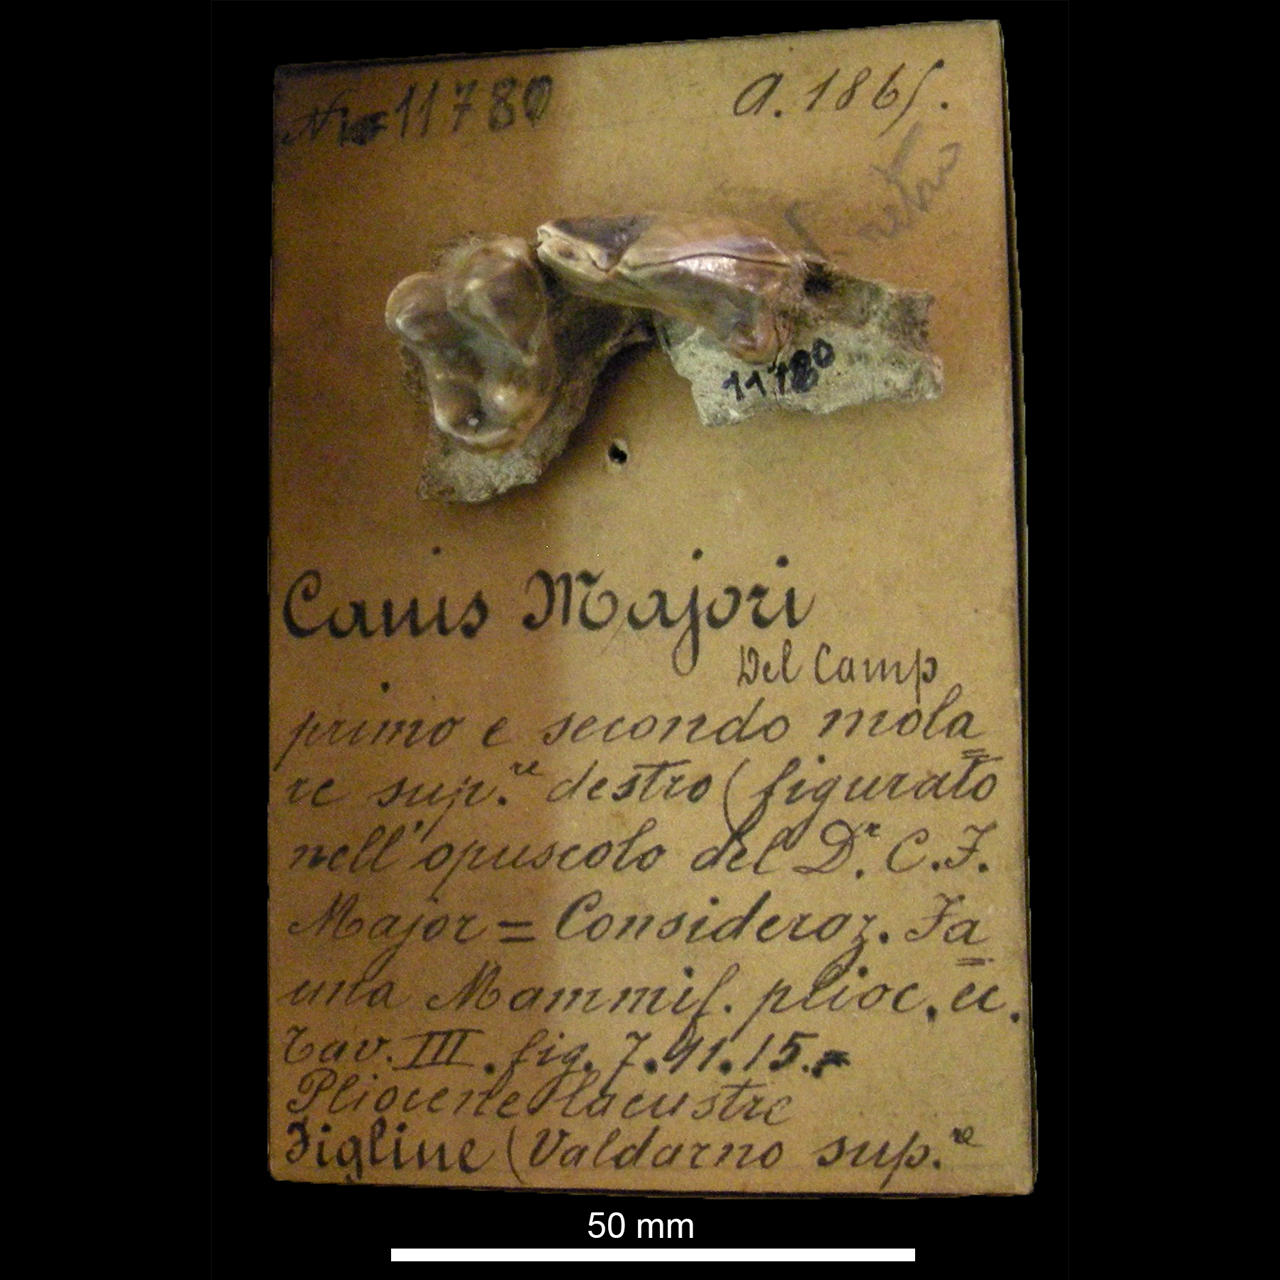 No 11780
a. 1865.
11780
Canis Majori
Del Camp
primo e secondo mola
re sup.re destro (figurato
nell'opuscolo del Dr. C. F.
Major = Consideraz. Fa
una Mammif. plioc. ec.
Tav. III. fig. 7. 11. 15.=
Pliocene lacustre
Figline (Valdarno sup.re
50 mm